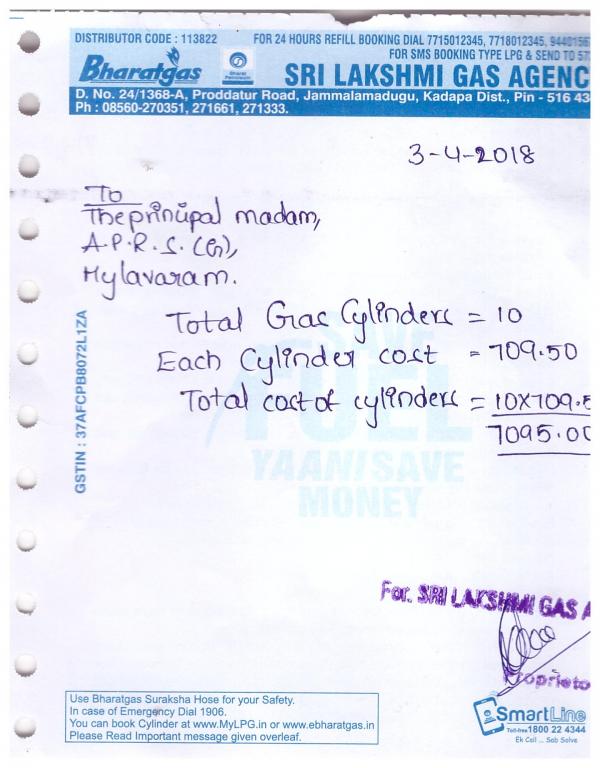 DISTRIBUTOR CODE : 113822 FOR 24 HOURS REFILL BOOKING DIAL 7715012345, 7718012345,
FOR SMS BOOKING TYPE LPG & SEND TO
Bharatgas
Bharat Petroleum
SRI LAKSHMI GAS AGENC
D. No. 24/1368-A, Proddatur Road, Jammalamadugu, Kadapa Dist., Pin - 516 43
Ph : 08560-270351, 271661, 271333.
3-4-2018
To
The prinupal madam,
A.P.R.S. (G),
Mylavaram.
Total Gas Cylinders = 10
Each Cylinder cost = 709.50
Total cost of cylinders = 10X709.5
7095.00
GSTIN : 37AFCPB8072L1ZA
SAVE
FUEL
YAANI SAVE
MONEY
For. SRI LAKSHMI GAS A
Proprieto
Use Bharatgas Suraksha Hose for your Safety.
In case of Emergency Dial 1906.
You can book Cylinder at www.MyLPG.in or www.ebharatgas.in
Please Read Important message given overleaf.
SmartLine
Toll-free 1800 22 4344
Ek Call ... Sab Solve